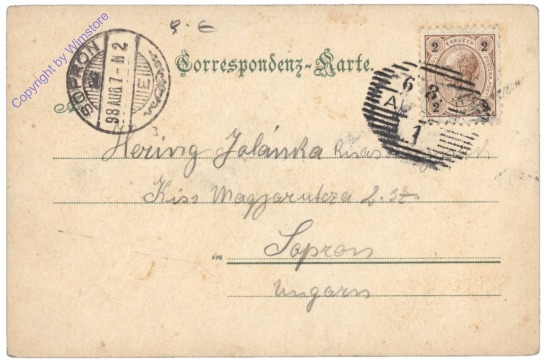 9. E
Correspondenz-Karte.
SOPRON
98 AUG 7 N 2
E
2 KREUZER 2
2 2
6 8
1
An
Hering Jolánka
Kiss Magyar utcza 2. sz
in Sopron
Ungarn
Copyright by Wimstore